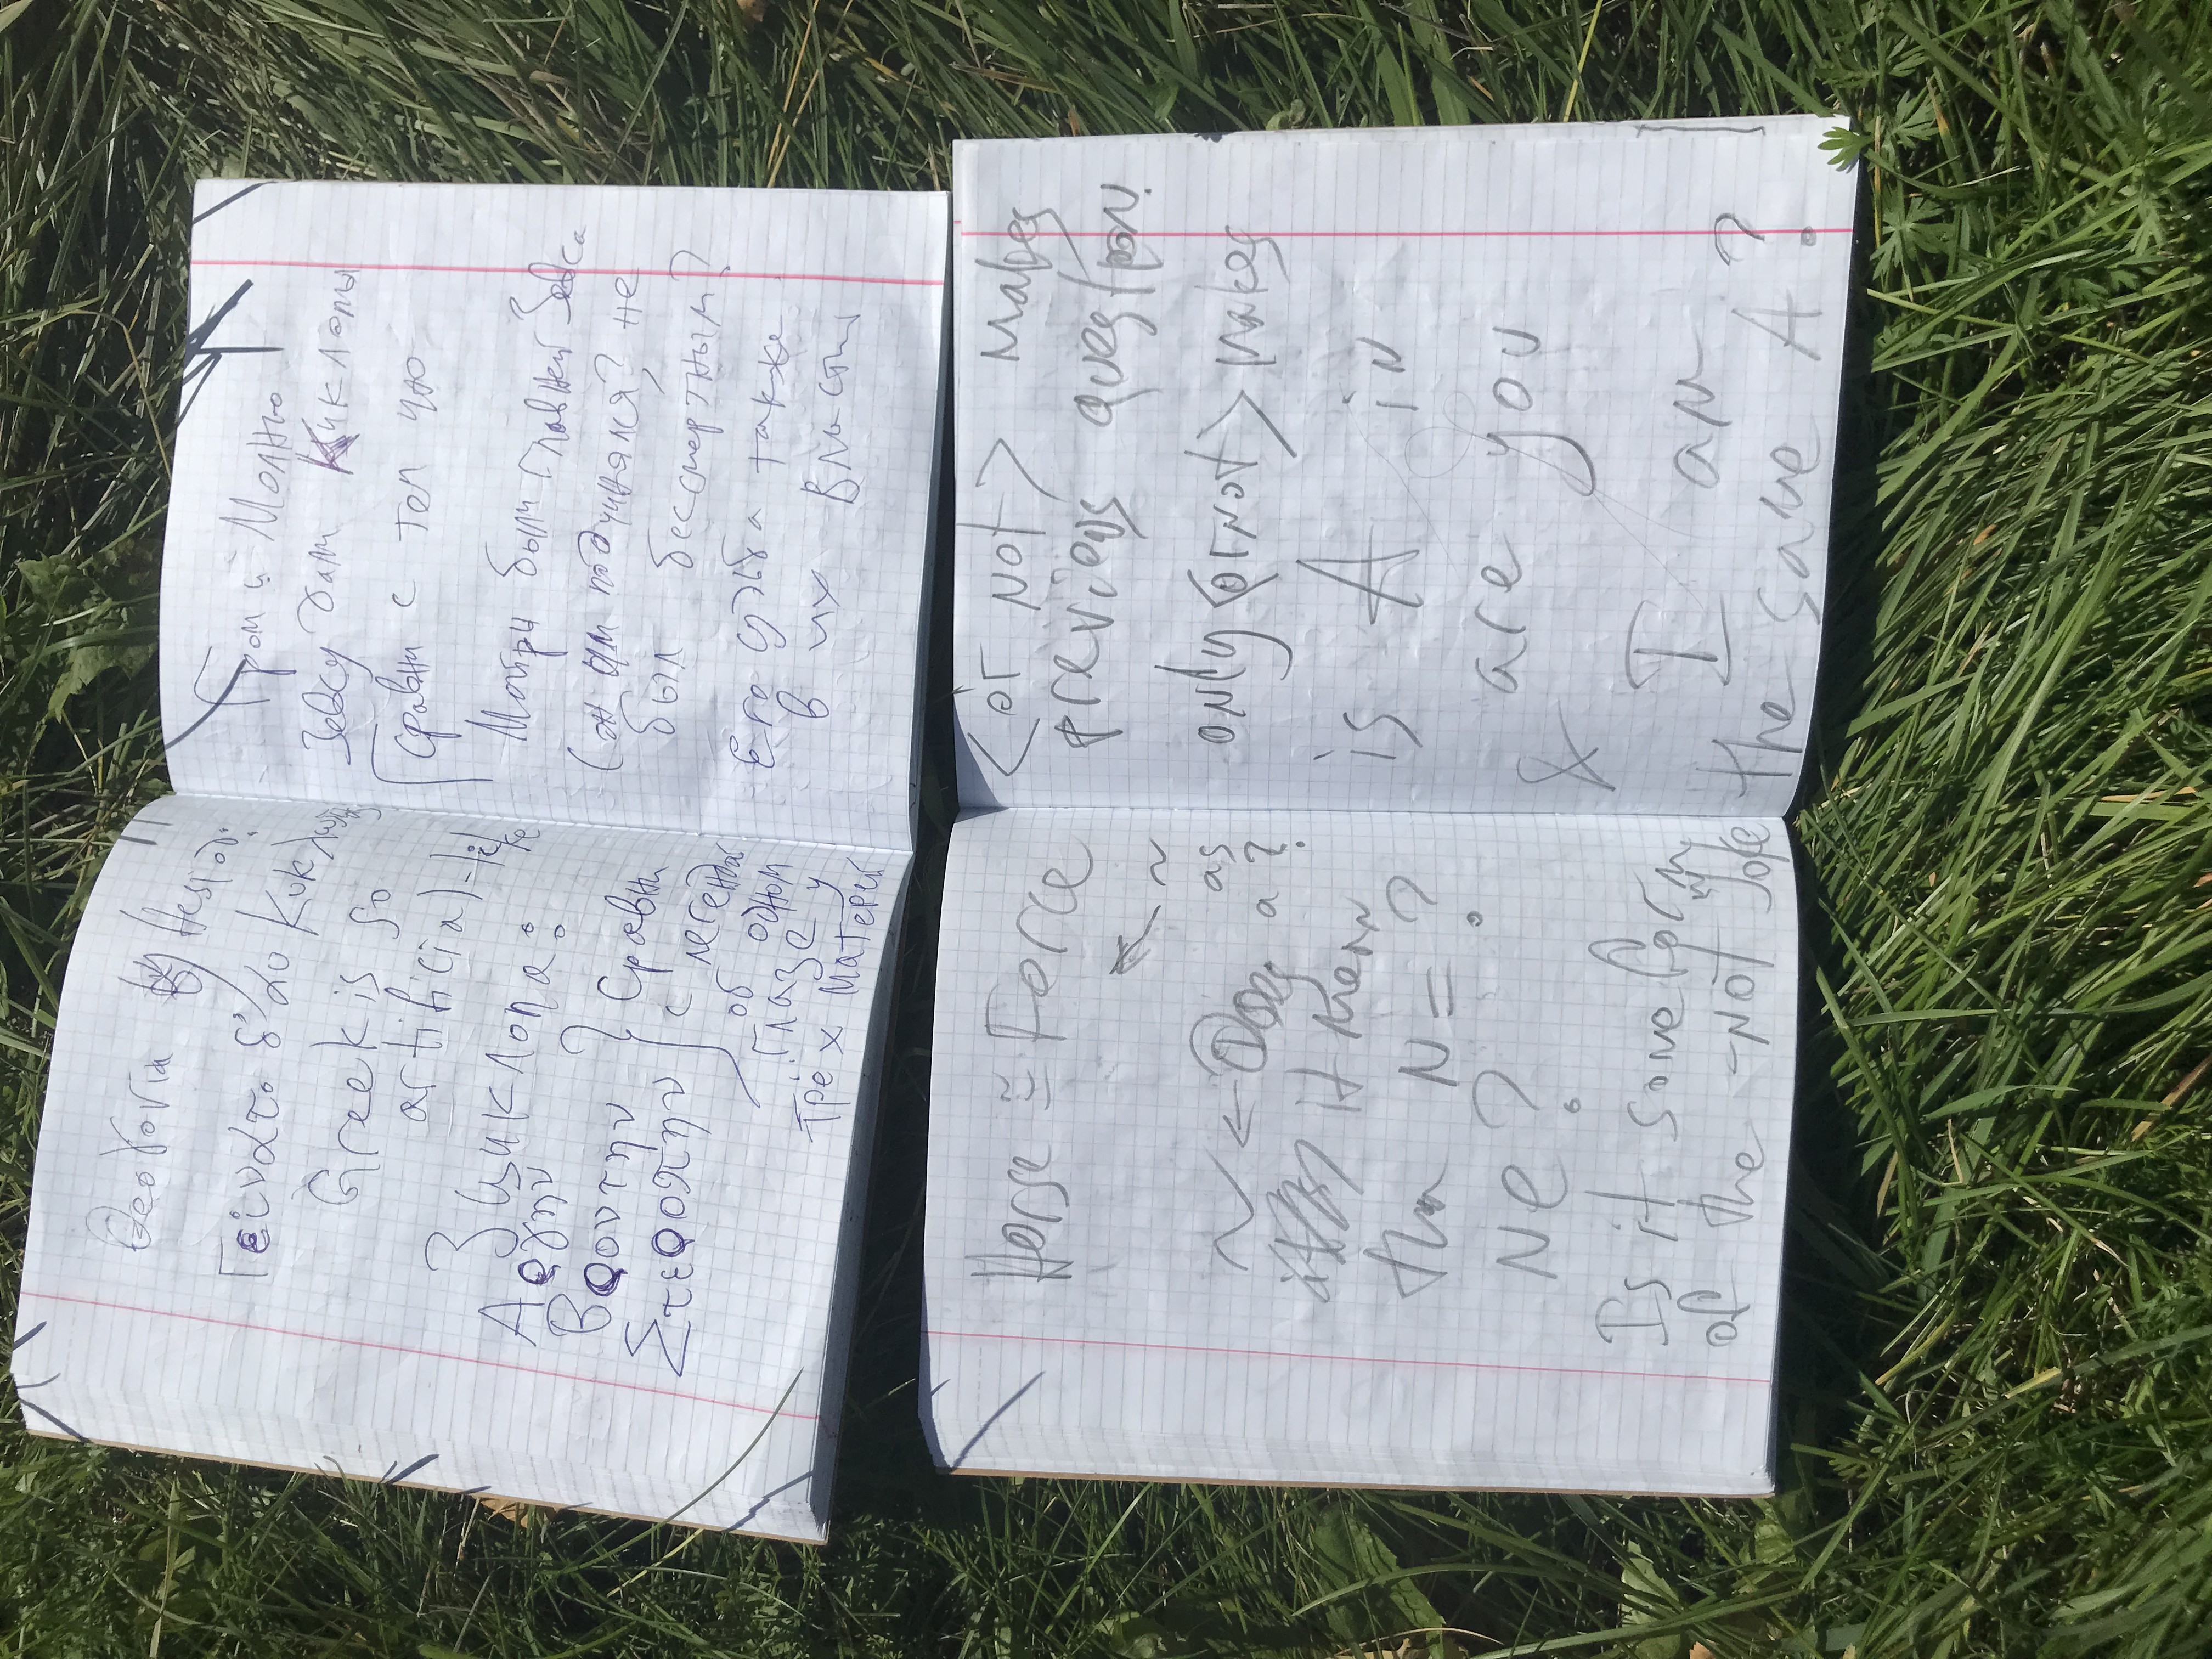 Θεογονία by Hesiod:
Γείνατο δ' αυ Κυκλωπας
Greek is so
artificial-like
3 циклопа:
Αργην
Βροντην
Στεροπην
Сравни
с легендой
об одном
глазе у
трёх матерей
Гром и Молнию
Зевсу дали Киклопы
Сравни с тем что
Мойры были главней Зевса
(он им подчинялся? не
был бессмертным?
Его судьба также
в их власти
Horse ≅ Force
← ~
as
a?
~ ← Does
it mean
tha N = ?
Ne?
Is it some form
of the -NOT joke
<or not> makes
previous question.
only <or not> makes
is A in
are you
&
I am
the same A?